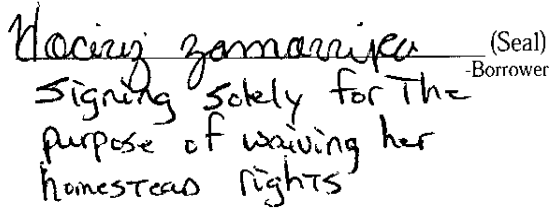 zamarripa (Seal)
-Borrower
Signing solely for The
purpose of waiving her
homestead rights